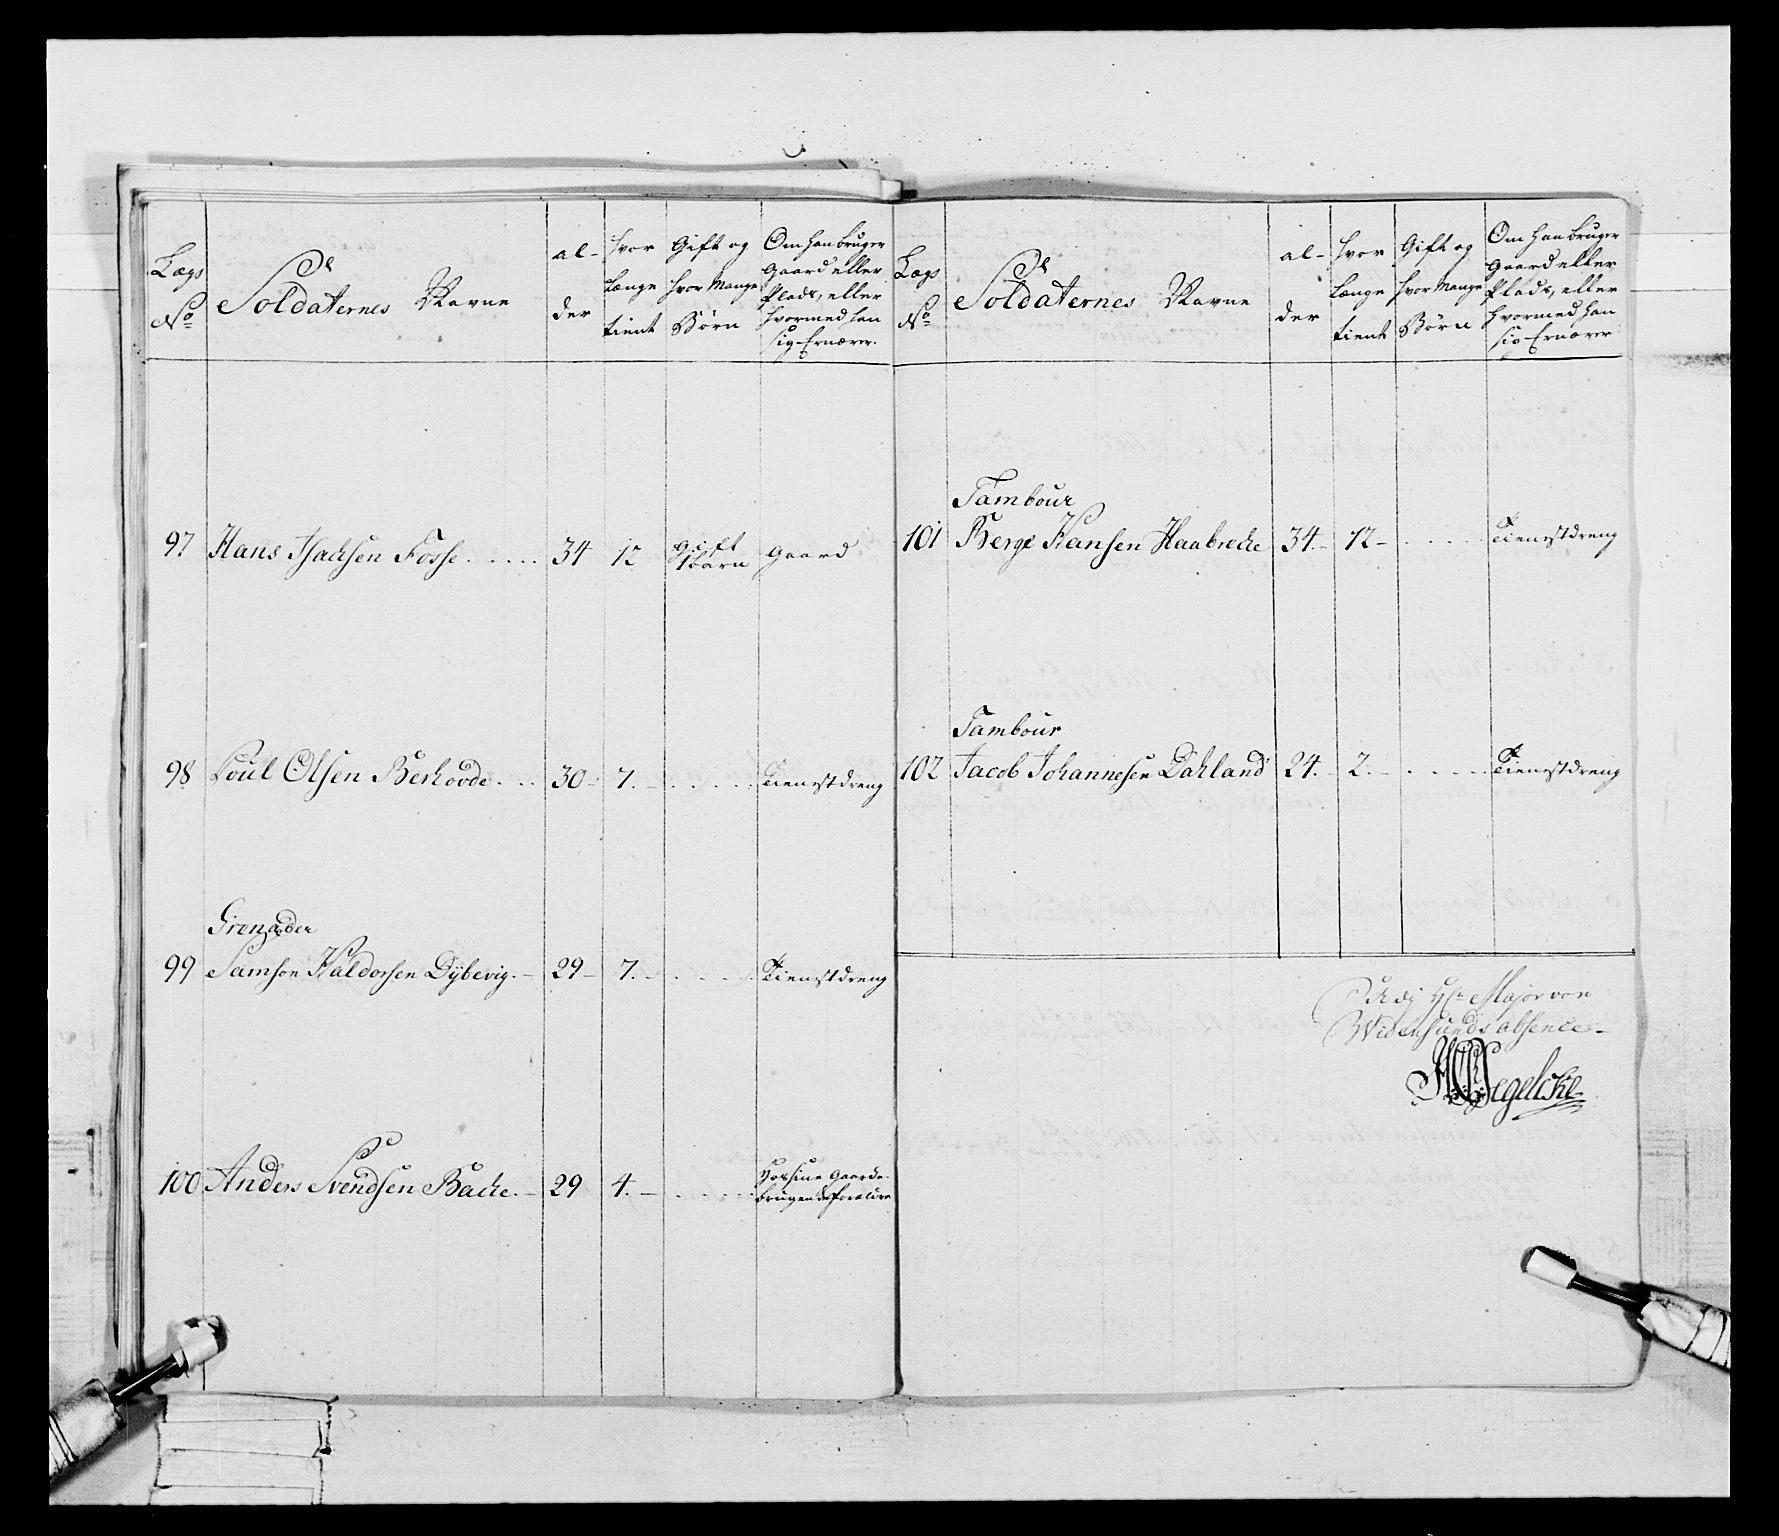 Lægs
No
Soldaternes Navne
al-
der
hvor
længe
tient
Gift og
hvor Mange
Børn
Om han bruger
Gaard eller
Plads, eller
hvormed han
sig Ernærer.
97 Hans Isachsen Fosse . . . . . 34 12 gift 1 barn gaard
98 Poul Olsen Berhovde . . . 30 - 7. - . . . . . Tienestdreng
Grenader
99 Samson Haldorsen Dÿbevig. - 29 - 7. - . . . . . Tienestdreng
100 Anders Svendsen Backe. - 29 4. - . . . . . Hos sine Gaard-
brugende forældre
Lægs
No
Soldaternes Navne
al-
der
hvor
længe
tient
Gift og
hvor Mange
Børn
Om han bruger
Gaard eller
Plads, eller
hvormed han
sig Ernærer
Tambour
101 Berge Hansen Haabrecke 34. - 12 - . . . . . Tienestdreng
Tambour
102 Jacob Johannesen Dahland 24. - 2. - . . . . . Tienestdreng
Hr Major von
Widensunds absence -